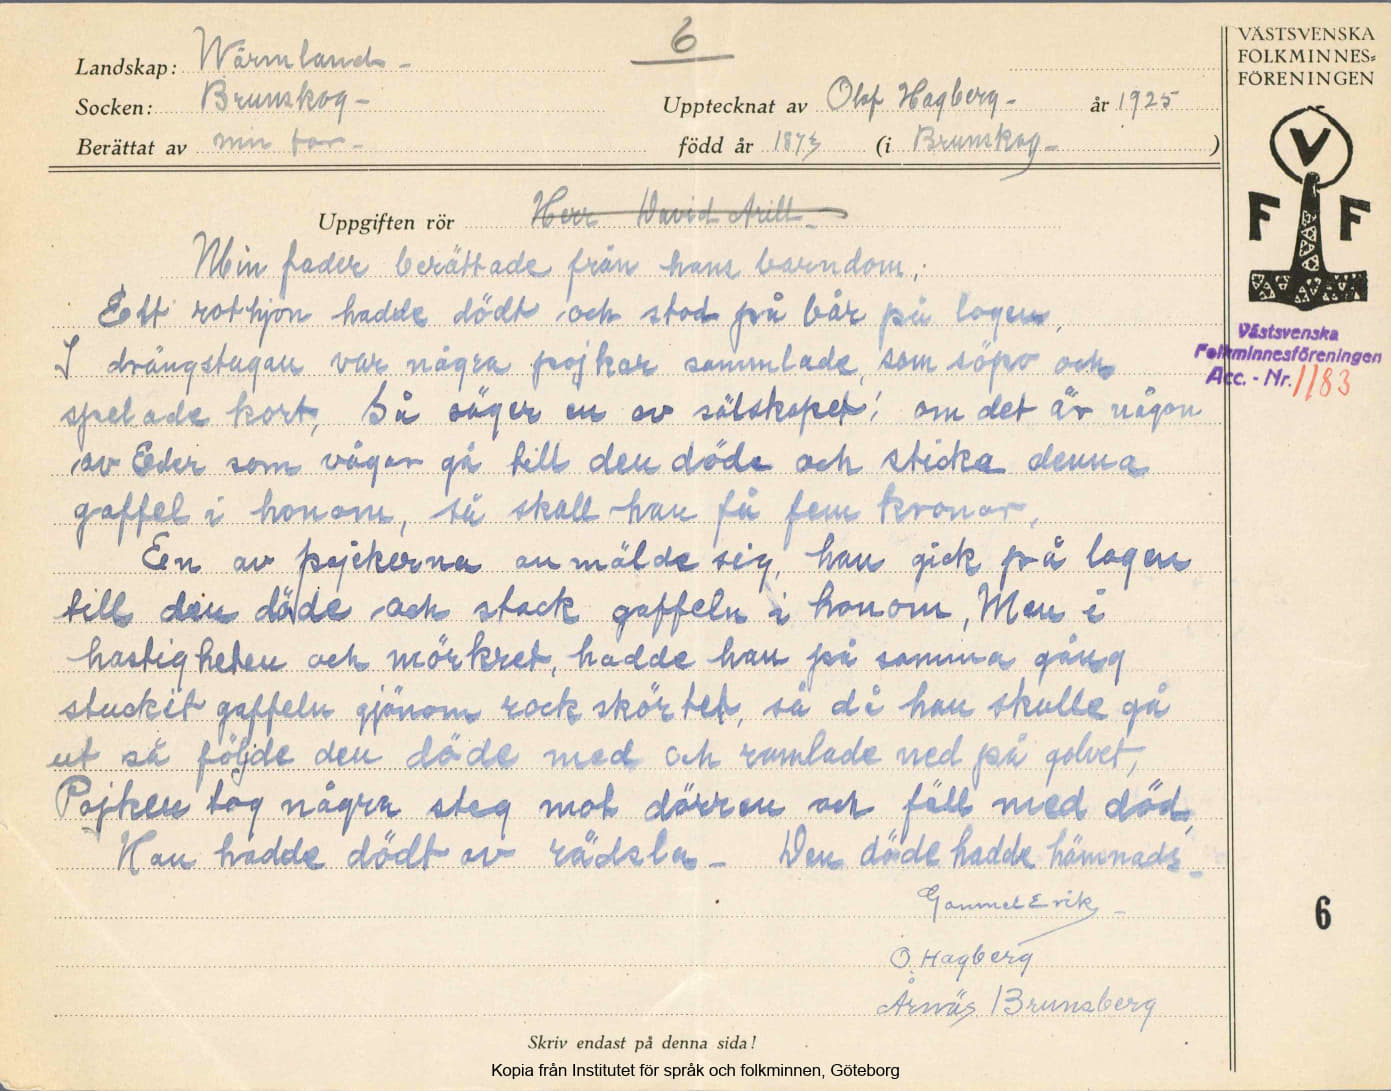 6
Landskap: Wärmland -
Socken: Brunskog -
Upptecknat av Olof Hagberg - år 1925
Berättat av min far -
född år 1873 (i Brunskog - )
Uppgiften rör Herr David Arill -
Min fader berättade från hans barndom,
Ett rothjon hadde dödt och stod på bår på logen,
I drängstugan var några pojkar sammlade, som söpo och
spelade kort, Så säger en av sälskapet! om det är någon
av Eder som vågar gå till den döde och sticka denna
gaffel i honom, så skall han få fem kronor,
En av pojkerna anmälde sig, han gick på logen
till den döde och stack gaffeln i honom, Men i
hastigheten och mörkret, hadde han på samma gång
stuckit gaffeln gjönom rockskörtet, så då han skulle gå
ut så följde den döde med och ramlade ned på golvet,
Pojken tog några steg mot dörren och föll med död,
Han hadde dödt av rädsla - Den döde hadde hämnads -
Gammel Erik -
O. Hagberg
Årnäs Brunsberg
Skriv endast på denna sida!
Kopia från Institutet för språk och folkminnen, Göteborg
VÄSTSVENSKA
FOLKMINNES=
FÖRENINGEN
V
F F
Västsvenska
Folkminnesföreningen
Acc. - Nr. 1183
6